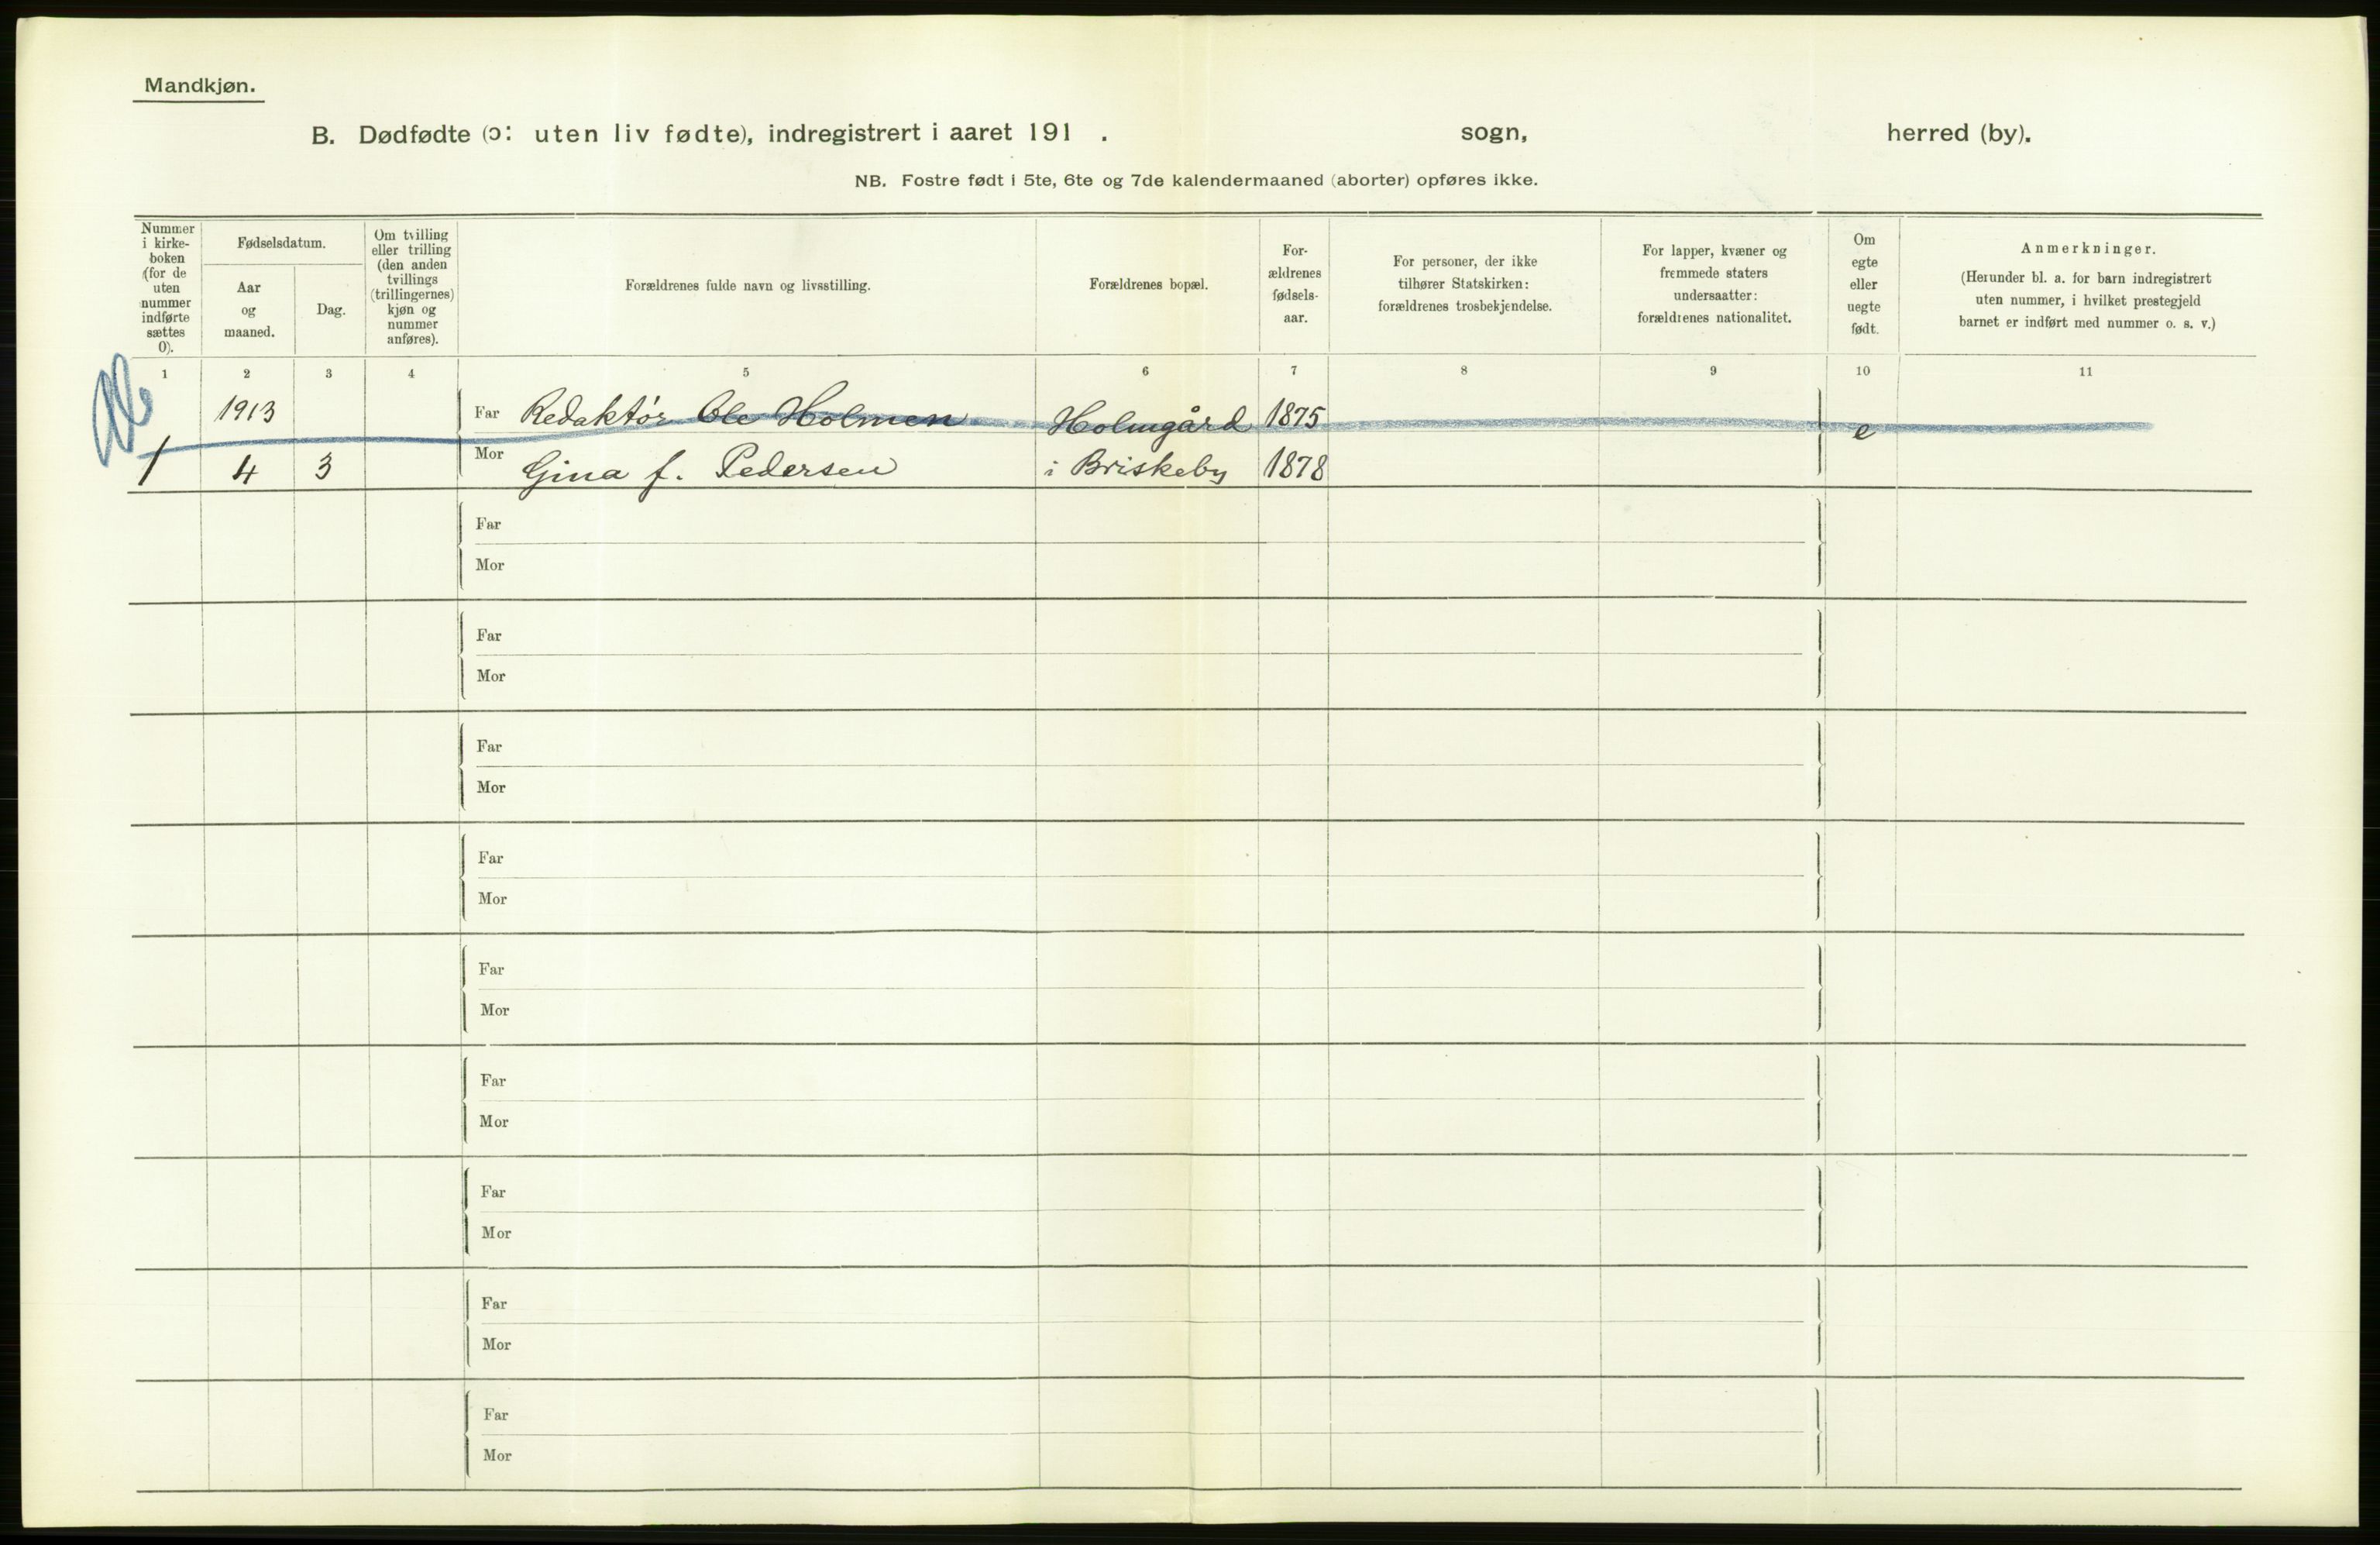 Mandkjøn.
B. Dødfødte (ɔ: uten liv fødte), indregistrert i aaret 191 . sogn, herred (by).
NB. Fostre født i 5te, 6te og 7de kalendermaaned (aborter) opføres ikke.
Nummer
i kirke-
boken
(for de
uten
nummer
indførte
sættes
0).
Fødselsdatum.
Aar
og
maaned.
Dag.
Om tvilling
eller trilling
(den anden
tvillings
(trillingernes)
kjøn og
nummer
anføres).
Forældrenes fulde navn og livsstilling.
Forældrenes bopæl.
For-
ældrenes
fødsels-
aar.
For personer, der ikke
tilhører Statskirken:
forældrenes trosbekjendelse.
For lapper, kvæner og
fremmede staters
undersaatter:
forældrenes nationalitet.
Om
egte
eller
uegte
født.
Anmerkninger.
(Herunder bl. a. for barn indregistrert
uten nummer, i hvilket prestegjeld
barnet er indført med nummer o. s. v.)
1 2 3 4 5 6 7 8 9 10 11
1913 Far Redaktør Ole Holmen Holmgård 1875 e
1 4 3 Mor Gina f. Pedersen i Briskeby 1878
Far
Mor
Far
Mor
Far
Mor
Far
Mor
Far
Mor
Far
Mor
Far
Mor
Far
Mor
Far
Mor